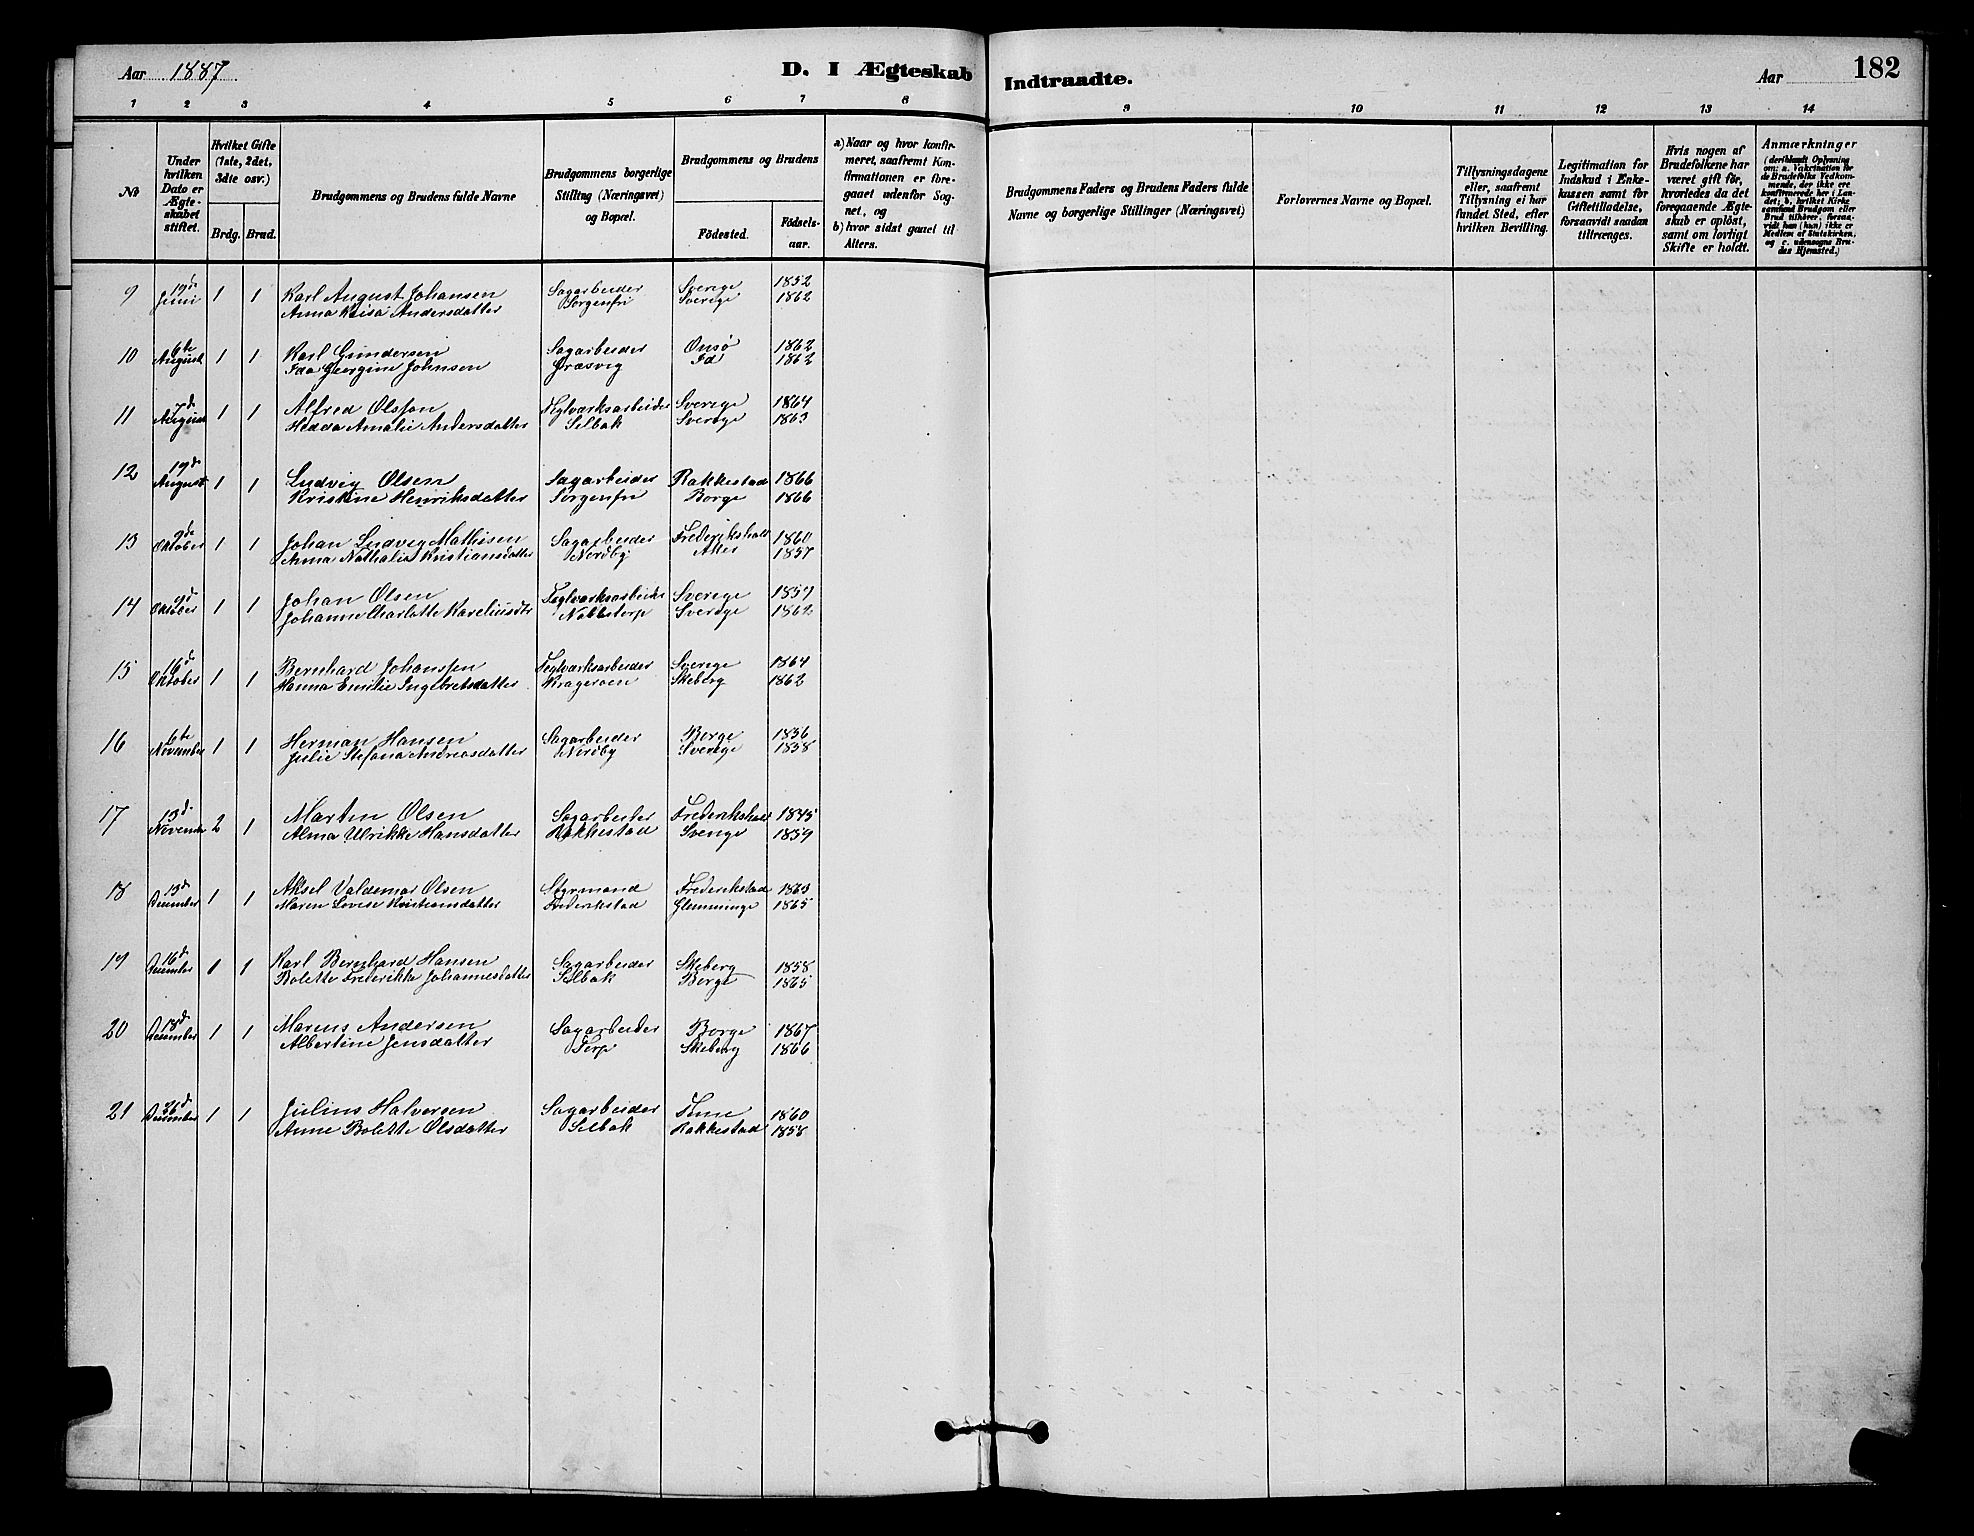 Aar 1887. D. I Ægteskab Indtraadte. Aar 182
1 2 3 4 5 6 7 8 9 10 11 12 13 14
No
Under hvilken Dato er Ægteskabet stiftet.
Hvilket Gifte (1ste, 2det, 3die osv.)
Brdg. Brud.
Brudgommens og Brudens fulde Navne
Brudgommens borgerlige Stilling (Næringsvei) og Bopæl.
Brudgommens og Brudens
Fødested. Fødsels-aar.
a) Naar og hvor konfirmeret, saafremt Konfirmationen er foregaaet udenfor Sognet, og
b) hvor sidst gaaet til Alters.
Brudgommens Faders og Brudens Faders fulde Navne og borgerlige Stillinger (Næringsvei)
Forlovernes Navne og Bopæl.
Tillysningsdagene eller, saafremt Tillysning ei har fundet Sted, efter hvilken Bevilling.
Legitimation for Indskud i Enkekassen samt for Giftetilladelse, forsaavidt saadan tiltrænges.
Hvis nogen af Brudefolkene har været gift før, hvorledes da det foregaaende Ægteskab er opløst, samt om lovligt Skifte er holdt.
Anmærkninger
(deriblandt Oplysning om: a. Vakcination for de Brudefolks Vedkommende, der ikke ere konfirmerede her i Landet; b. hvilket Kirkesamfund Brudgom eller Brud tilhører, forsaavidt han (hun) ikke er Medlem af Statskirken, og c. udensogns Brudes Hjemsted.)
9 19d Juni 1 1 Karl August Johansen Sagarbeider Sverige 1852
Anna Kaisa Andersdatter Sorgenfri Sverige 1862
10 6te August 1 1 Karl Gundersen Sagarbeider Onsø 1862
Ida Georgine Johnsen Græsvig Id 1862
11 7d August 1 1 Alfred Olsson Teglværksarbeider Sverige 1864
Hedda Amalie Andersdatter Selbak Sverige 1863
12 19d August 1 1 Ludvig Olsen Sagarbeider Rakkestad 1866
Kristine Henriksdatter Sorgenfri Borge 1866
13 2de Oktober 1 1 Johan Ludvig Mathisen Sagarbeider Frederikshald 1860
Anna Nathalie Kristiansdatter Nordby Aker 1857
14 Oktober 1 1 Johan Olsen Teglværksarbeider Sverige 1857
Johanne Charlotte Kareliusdtr Nabbetorp Sverige 1862
15 16d Oktober 1 1 Bernhard Johanssen Teglværksarbeider Sverige 1864
Hanna Emilie Ingebretsdatter Krageroen Skeberg 1862
16 6te November 1 1 Herman Hansen Sagarbeider Borge 1856
Julie Stefana Andreasdatter Nordby Sverige 1858
17 13d November 2 1 Martin Olsen Sagarbeider Frederikshald 1845
Alma Ulrikke Hansdatter Rakkestad Sverige 1859
18 13d December 1 1 Aksel Valdemar Olsen Styrmand Frederikstad 1863
Maren Lovise Kristiansdatter Frederikstad Glemminge 1865
19 16d December 1 1 Karl Bernhard Hansen Sagarbeider Skeberg 1858
Bolette Frederikke Johannesdatter Selbak Borge 1865
20 18d December 1 1 Marius Andersen Sagarbeider Borge 1867
Albertine Jensdatter Torp Skeberg 1866
21 26d December 1 1 Julius Halversen Sagarbeider Tune 1860
Anne Bolette Olsdatter Selbak Rakkestad 1858